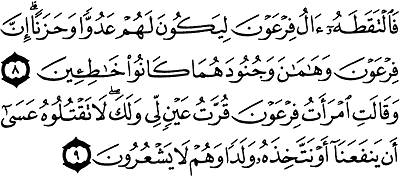 فَٱلْتَقَطَهُۥٓ ءَالُ فِرْعَوْنَ لِيَكُونَ لَهُمْ عَدُوًّا وَحَزَنًا ۗ إِنَّ
فِرْعَوْنَ وَهَٰمَٰنَ وَجُنُودَهُمَا كَانُوا۟ خَٰطِـِٔينَ ٨
وَقَالَتِ ٱمْرَأَتُ فِرْعَوْنَ قُرَّتُ عَيْنٍ لِّى وَلَكَ ۖ لَا تَقْتُلُوهُ عَسَىٰٓ
أَن يَنفَعَنَآ أَوْ نَتَّخِذَهُۥ وَلَدًا وَهُمْ لَا يَشْعُرُونَ ٩